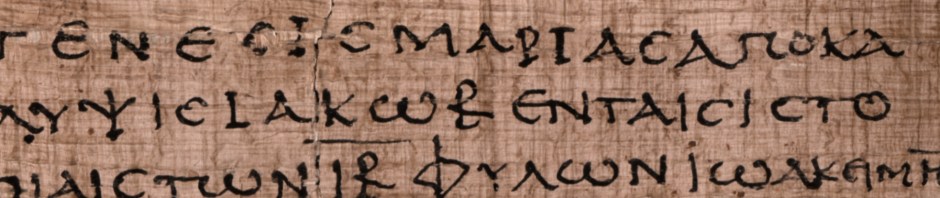 ΓΕΝΕϹΙϹ ΜΑΡΙΑϹ ΑΠΟΚΑ
ΛΥΨΙϹ ΙΑΚΩΒ ΕΝ ΤΑΙϹ ΙϹΤΟ
ΡΙΑΙϹ ΤΩΝ Ι̅Β̅ ΦΥΛΩΝ ΙΩΑΚΕΙΜ Η̅